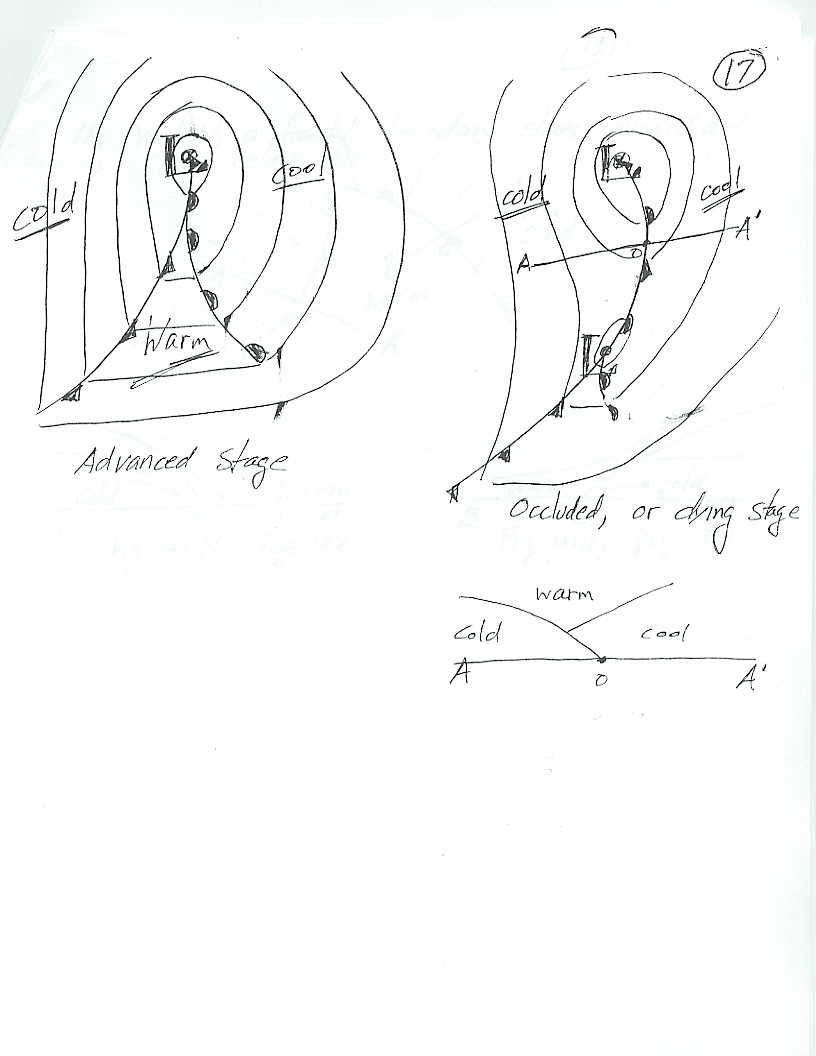 17
L
cool
cold
Warm
Advanced Stage
L
cold
cool
A
A'
o
L
Occluded, or dying stage
warm
cold
cool
A
o
A'